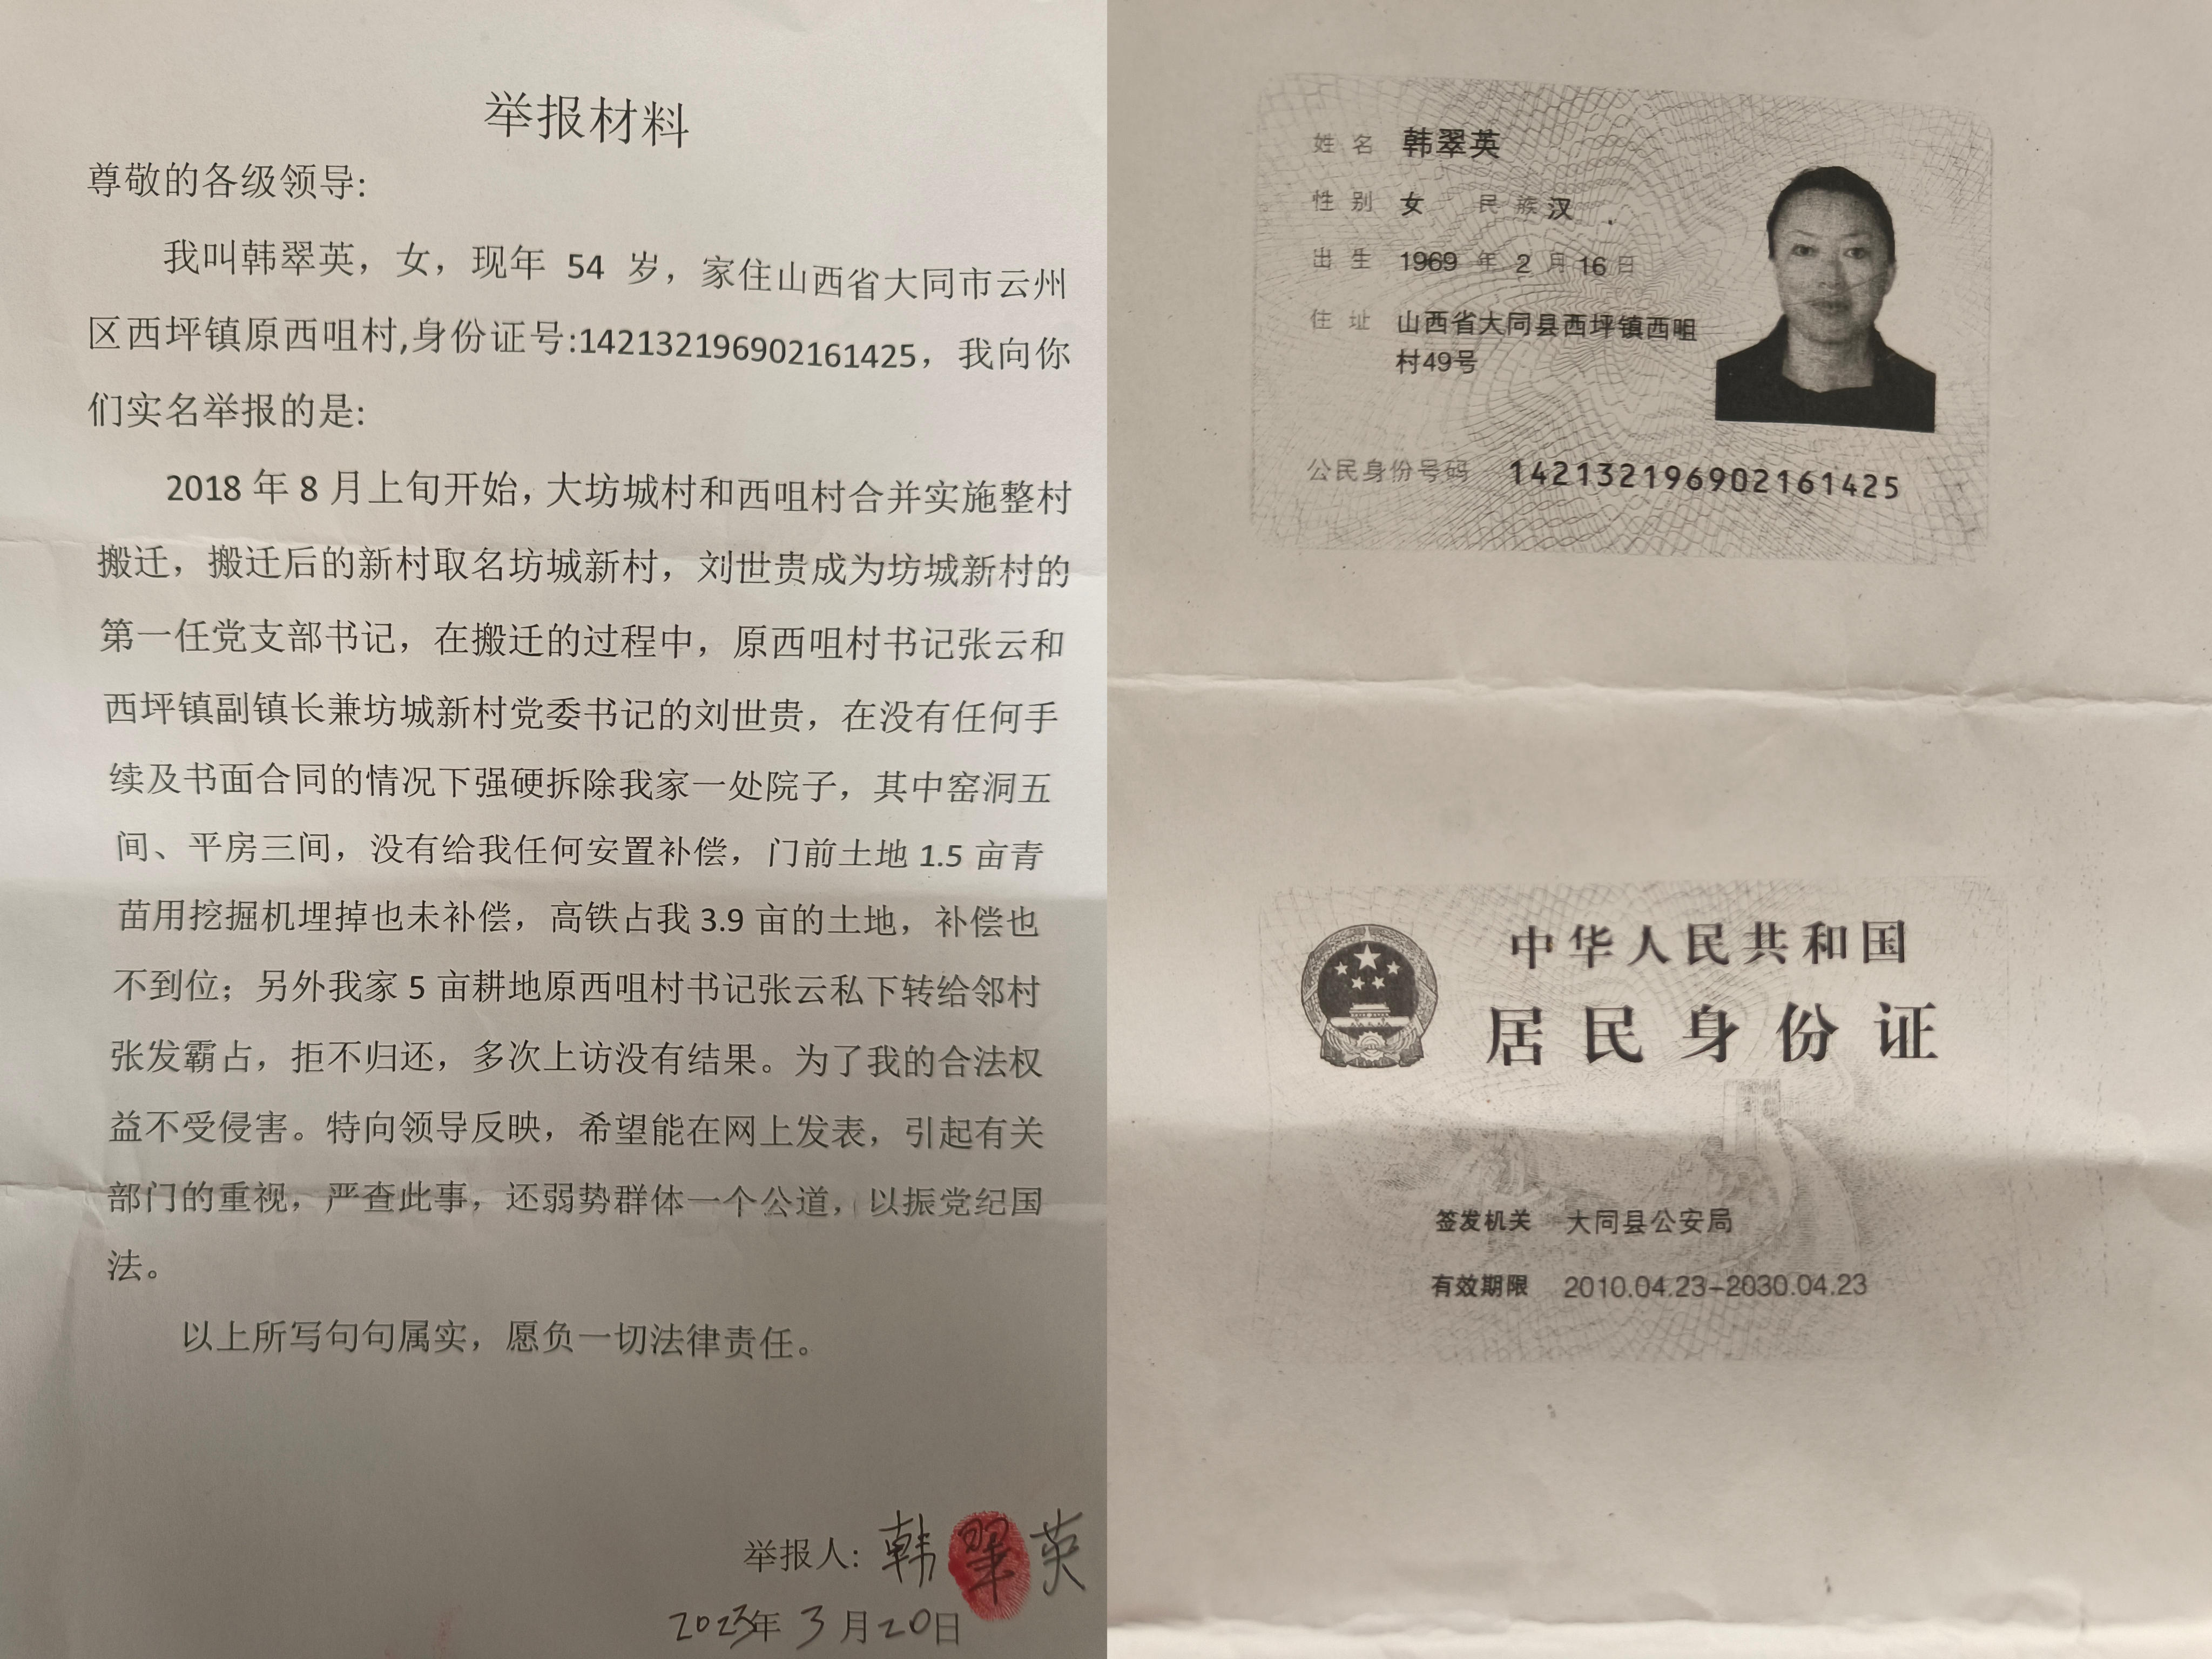 举报材料
尊敬的各级领导:
我叫韩翠英，女，现年 54 岁，家住山西省大同市云州
区西坪镇原西咀村,身份证号:142132196902161425，我向你
们实名举报的是:
2018 年 8 月上旬开始，大坊城村和西咀村合并实施整村
搬迁，搬迁后的新村取名坊城新村，刘世贵成为坊城新村的
第一任党支部书记，在搬迁的过程中，原西咀村书记张云和
西坪镇副镇长兼坊城新村党委书记的刘世贵，在没有任何手
续及书面合同的情况下强硬拆除我家一处院子，其中窑洞五
间、平房三间，没有给我任何安置补偿，门前土地 1.5 亩青
苗用挖掘机埋掉也未补偿，高铁占我 3.9 亩的土地，补偿也
不到位；另外我家 5 亩耕地原西咀村书记张云私下转给邻村
张发霸占，拒不归还，多次上访没有结果。为了我的合法权
益不受侵害。特向领导反映，希望能在网上发表，引起有关
部门的重视，严查此事，还弱势群体一个公道，以振党纪国
法。
以上所写句句属实，愿负一切法律责任。
举报人: 韩翠英
2023年 3 月 20日
姓名 韩翠英
性别 女 民族 汉
出生 1969 年 2 月 16 日
住址 山西省大同县西坪镇西咀
村49号
公民身份号码 142132196902161425
中华人民共和国
居民身份证
签发机关 大同县公安局
有效期限 2010.04.23-2030.04.23